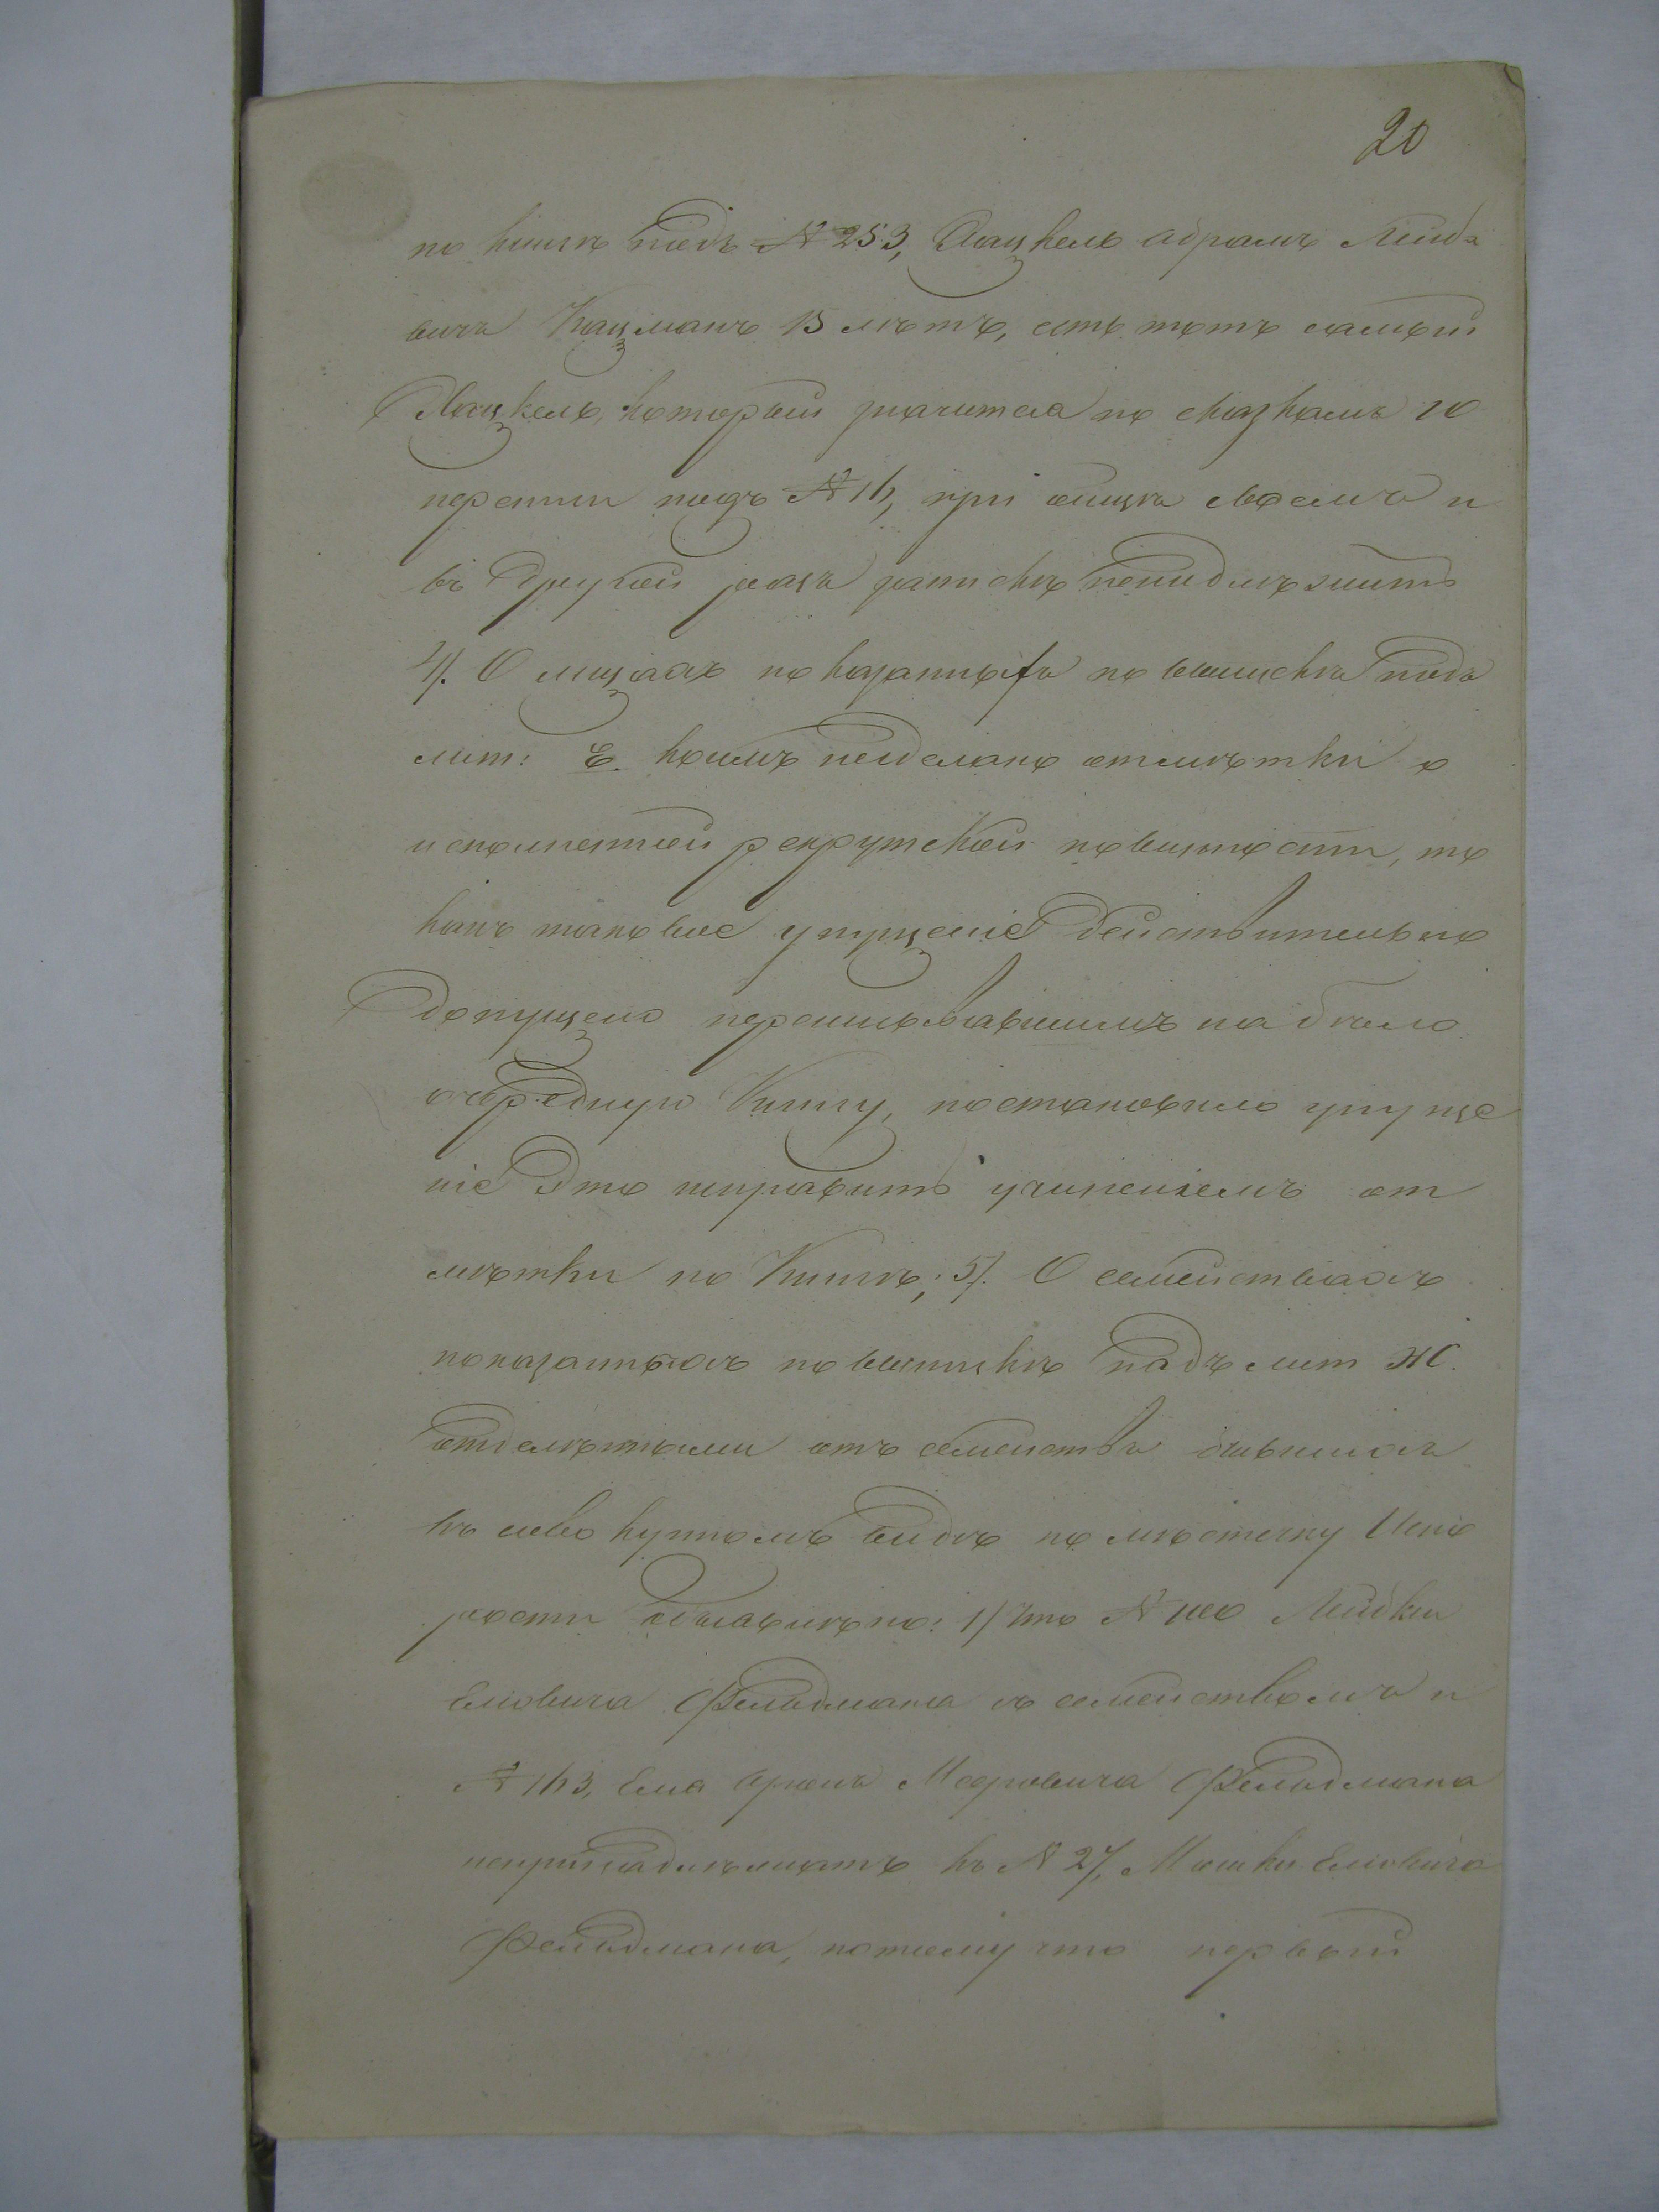 20
по книгѣ подъ № 253, Хацкель Абрамъ Лейбо
вичъ Кацманъ 15 лѣтъ, есть тотъ самый
Хацкель, который значится по сказкамъ 10
переписи подъ № 16, при отцѣ своемъ и
въ другой разъ запискѣ неподлѣжитъ
4). О лицахъ показанныхъ по выпискѣ подъ
лит: Е. коимъ несделано отмѣтки о
исполнетой рекрутской повинности, то
какъ таковое упущеніе действительно
допущено переписывавшимъ на бѣло
очередную Книгу, постановило упуще
ніе это исправить учиненіемъ от
мѣтки по Книгѣ; 5). О семействахъ
показанныхъ по выпискѣ подъ лит Ж.
отделѣнными отъ семействъ бывшихъ
въ совокупномъ видѣ по мѣстечку Иско
рости объявлѣно: 1) что № Лейбки
Еліовича Фельдмана съ семействомъ и
№ 163, Ела Аронъ Меэровича Фельдмана
непринадлѣжатъ къ № 27, Мошки Еліовича
Фельдмана, потому что первый